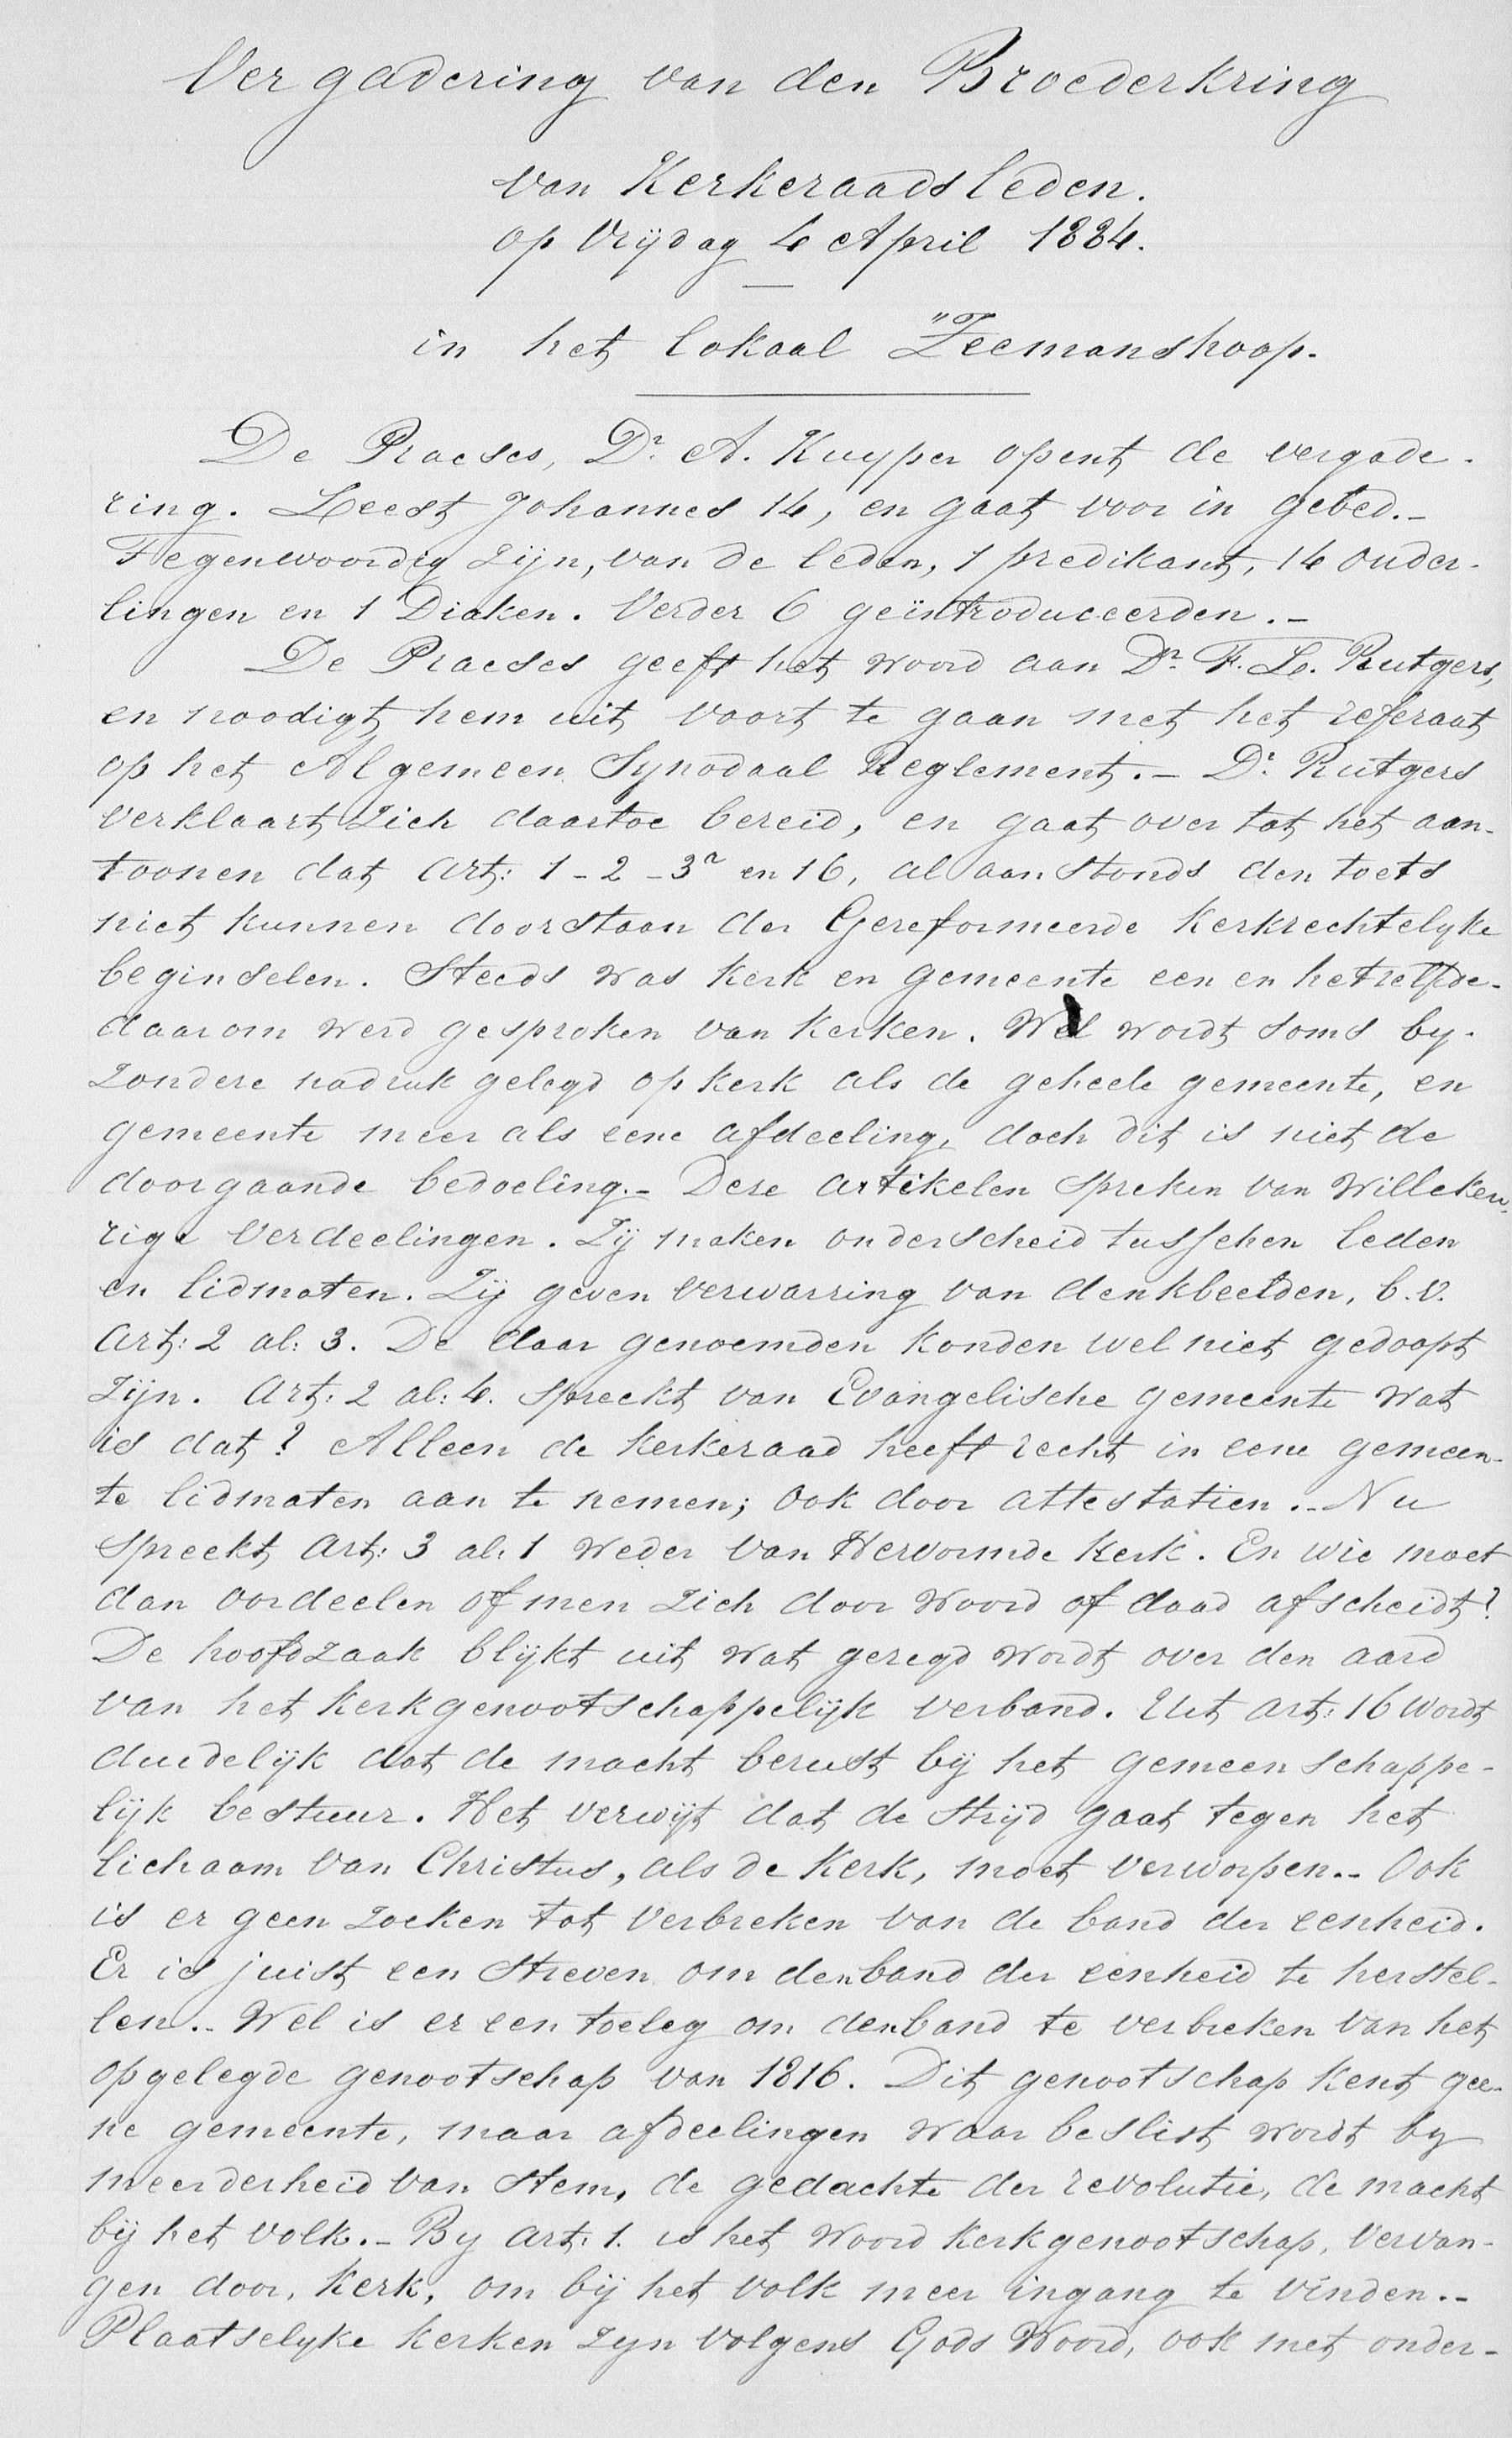 Vergadering van den Broederkring
van Kerkeraadsleden.
op Vrijdag 4 April 1884.
in het lokaal "Zeemanshoop.
De Praeses, Dr. A. Kuyper opent de vergade-
ring. Leest Johannes 14, en gaat voor in gebed.-
Tegenwoordig zijn, van de leden, 1 predikant, 14 ouder-
lingen en 1 Diaken. Verder 6 geïntroduceerden.-
De Praeses geeft het woord aan Dr. F. L. Rutgers,
en noodigt hem uit voort te gaan met het referaat
op het Algemeen Synodaal Reglement.- Dr. Rutgers
verklaart zich daartoe bereid, en gaat over tot het aan-
toonen dat Art: 1-2-3a en 16, al aanstonds den toets
niet kunnen doorstaan der Gereformeerde Kerkrechtelyke
beginselen. Steeds was kerk en gemeente een en hetzelfde-
daarom werd gesproken van kerken. Wel wordt soms by-
zondere nadruk gelegd op kerk als de geheele gemeente, en
gemeente meer als eene afdeeling, doch dit is niet de
doorgaande bedoeling.- Deze artikelen spreken van Willekeu-
rige verdeelingen. Zij maken onderscheid tusschen leden
en lidmaten. Zij geven verwarring van denkbeelden, b.v.
Art: 2 al: 3. De daar genoemden konden wel niet gedoopt
zijn. Art: 2 al: 4. spreekt van Evangelische gemeente wat
is dat? Alleen de kerkeraad heeft recht in eene gemeen-
te lidmaten aan te nemen; ook door attestatien.- Nu
spreekt Art: 3 al: 1 weder van Hervormde Kerk. En wie moet
dan oordeelen of men zich door woord of daad afscheidt?
De hoofdzaak blijkt uit wat gezegd wordt over den aard
van het kerkgenootschappelijk verband. Uit Art: 16 wordt
duidelijk dat de macht berust bij het gemeenschappe-
lijk bestuur. Het verwijt dat de strijd gaat tegen het
lichaam van Christus, als de Kerk, moet verworpen.- Ook
is er geen zoeken tot verbreken van de band der eenheid.
Er is juist een streven om den band der eenheid te herstel-
len.- Wel is er een toeleg om den band te verbreken van het
opgelegde genootschap van 1816. Dit genootschap kent gee-
ne gemeente, maar afdeelingen waar beslist wordt by
meerderheid van stem, de gedachte der revolutie, de macht
bij het volk.- By Art: 1. is het woord kerkgenootschap, vervan-
gen door, kerk, om bij het volk meer ingang te vinden.-
Plaatselyke kerken zyn volgens Gods Woord, ook met onder-